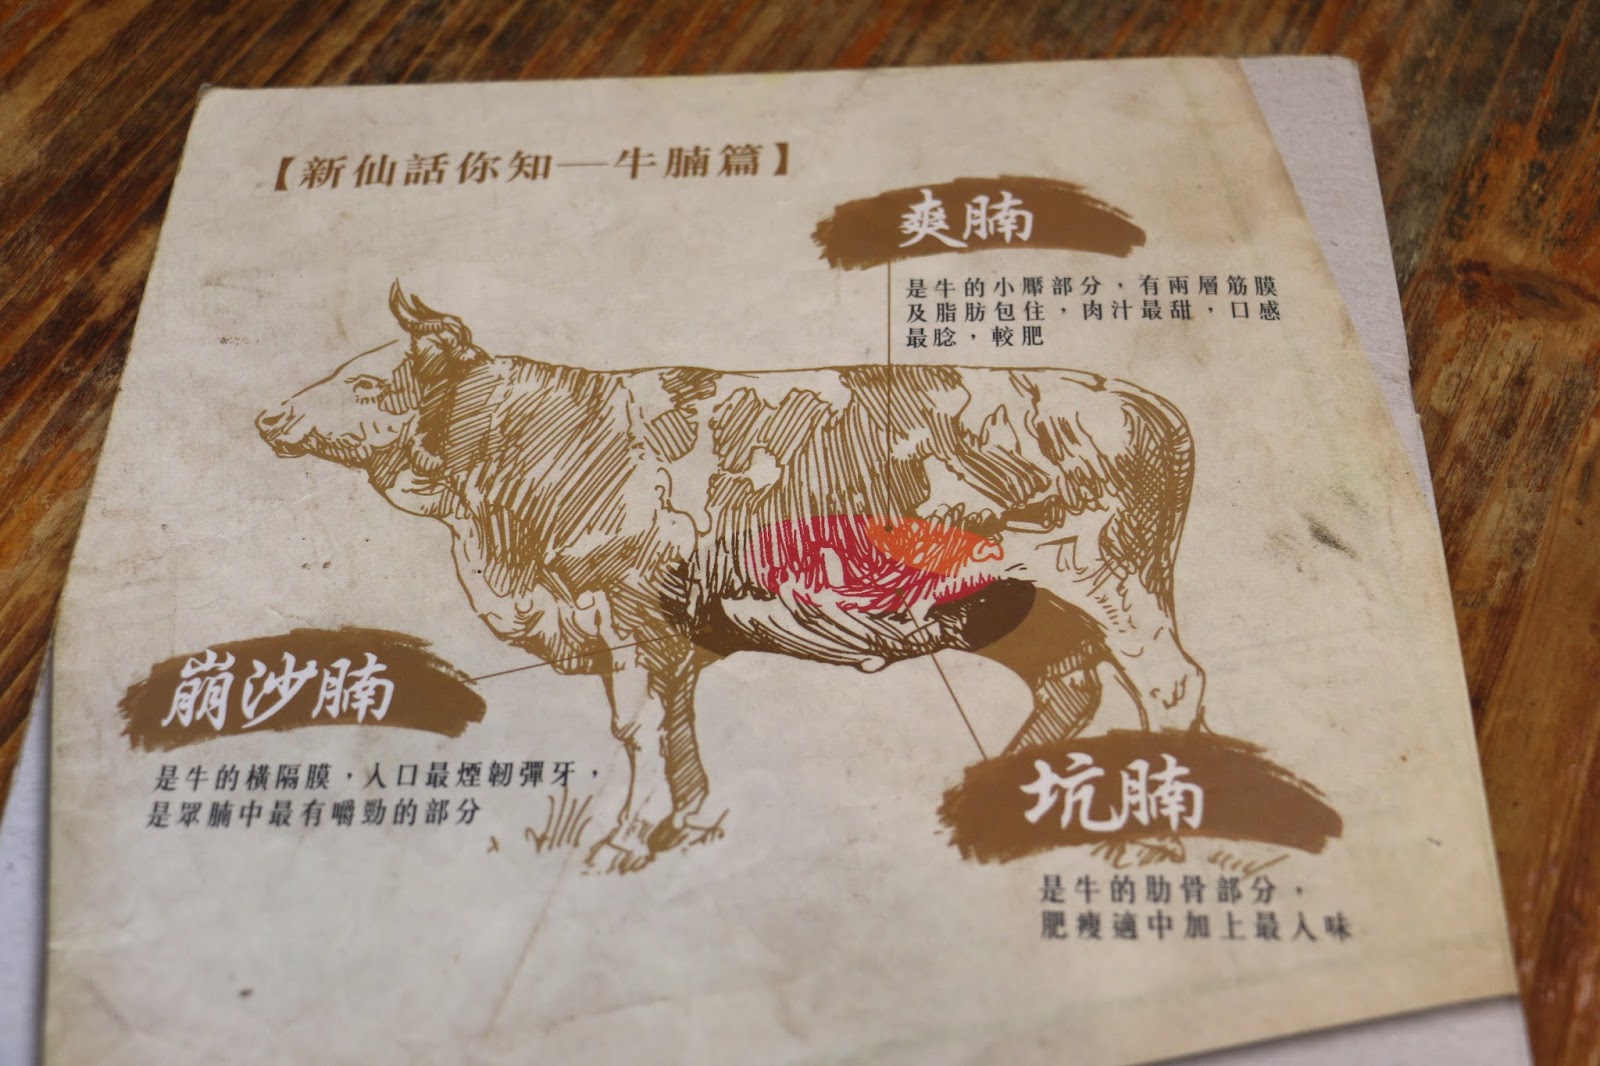 【新仙話你知—牛腩篇】
爽腩
是牛的小壓部分，有兩層筋膜
及脂肪包住，肉汁最甜，口感
最腍，較肥
崩沙腩
是牛的橫隔膜，入口最煙韌彈牙，
是眾腩中最有嚼勁的部分
坑腩
是牛的肋骨部分，
肥瘦適中加上最入味